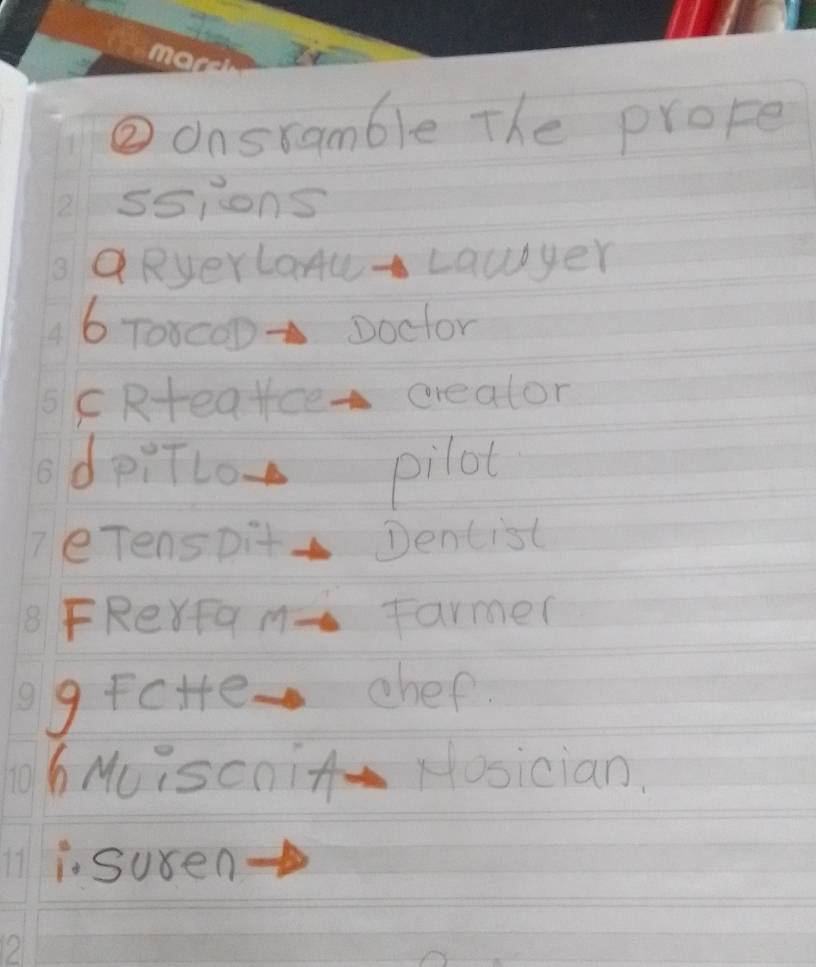 marsh
1 ② Onsramble The profe
2 ssions
3 a RyerLaAw → Lawyer
4 b TorcoD → Doctor
5 c R+eaHce → creator
6 d piTLo → pilot
7 e TensDit → Dentist
8 F RerFam → Farmer
9 g FcHe → chef.
10 h MuiscniA → Mosician.
11 i. suren →
12